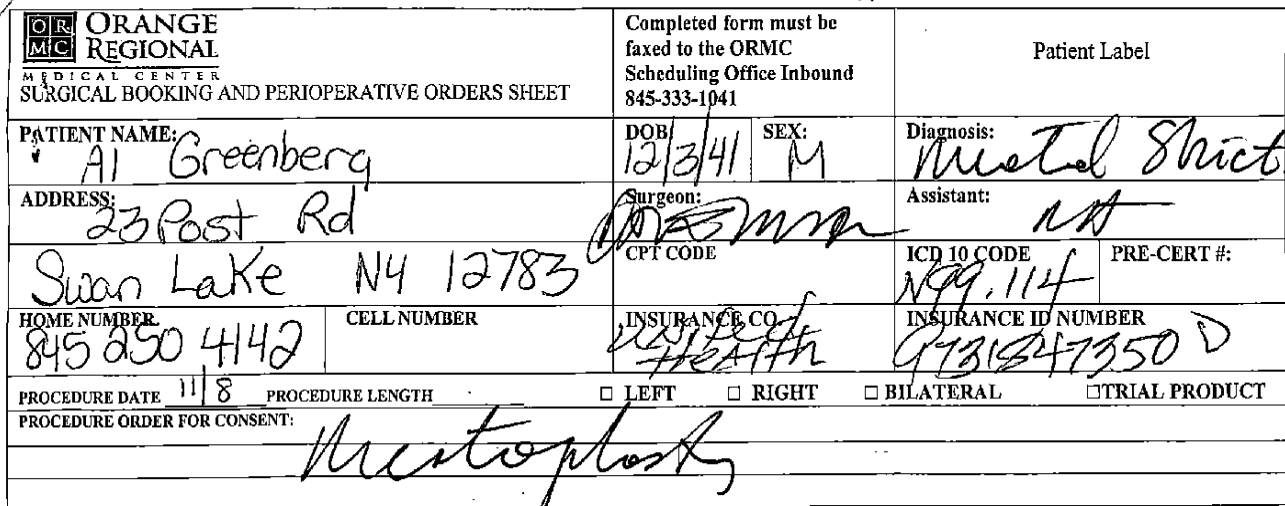 OR MC ORANGE REGIONAL
MEDICAL CENTER
SURGICAL BOOKING AND PERIOPERATIVE ORDERS SHEET
Completed form must be
faxed to the ORMC
Scheduling Office Inbound
845-333-1041
Patient Label
PATIENT NAME: Al Greenberg
DOB 12/3/41 SEX: M
Diagnosis: Meatal Strict
ADDRESS: 23 Post Rd
Surgeon:
Assistant: NA
Swan Lake NY 12783
CPT CODE
ICD 10 CODE N99.114
PRE-CERT #:
HOME NUMBER 845 250 4142
CELL NUMBER
INSURANCE CO United Health
INSURANCE ID NUMBER 9731847350 D
PROCEDURE DATE 11/8 PROCEDURE LENGTH
□ LEFT □ RIGHT □ BILATERAL □ TRIAL PRODUCT
PROCEDURE ORDER FOR CONSENT:
Meatoplasty